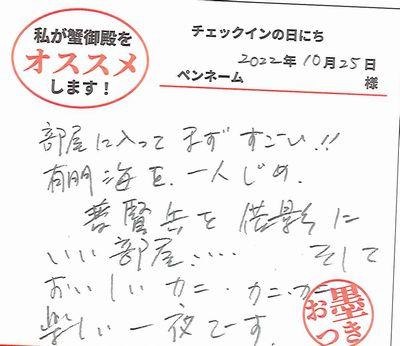 私が蟹御殿を
オススメ
します！
チェックインの日にち
2022年10月25日
ペンネーム
様
部屋に入ってまずすごーい!!
有明海を、一人じめ、
普賢岳を借景に
いい部屋、… そして
おいしいカニ・カニ・カニ
楽しい一夜でーす。
お墨つき